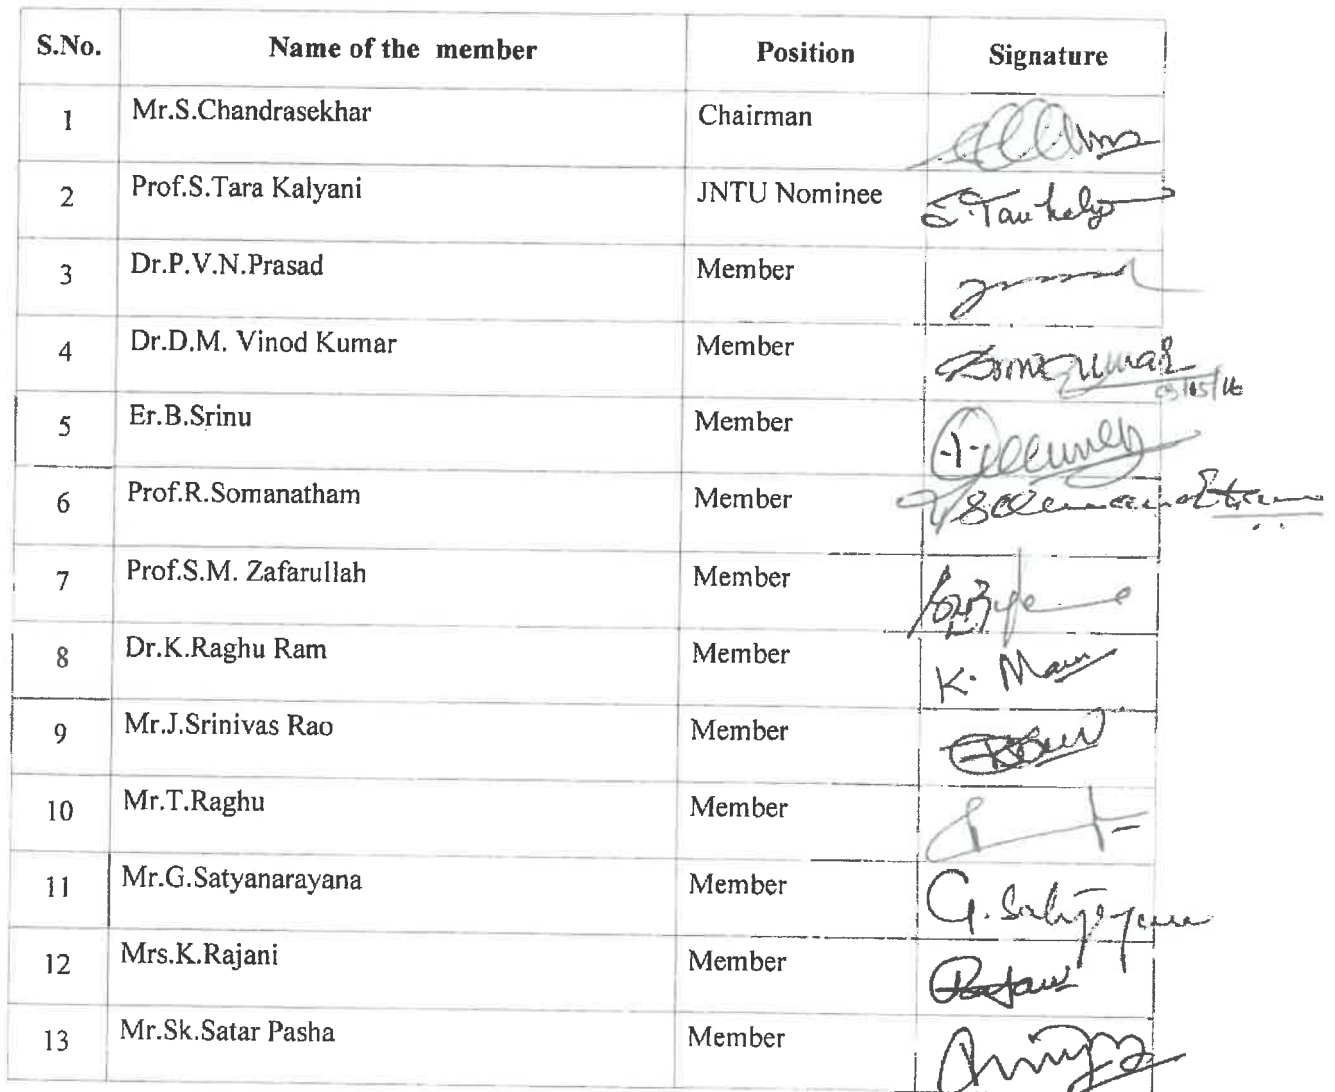 S.No. Name of the member Position Signature
1 Mr.S.Chandrasekhar Chairman
2 Prof.S.Tara Kalyani JNTU Nominee
3 Dr.P.V.N.Prasad Member
4 Dr.D.M. Vinod Kumar Member
5 Er.B.Srinu Member
6 Prof.R.Somanatham Member
7 Prof.S.M. Zafarullah Member
8 Dr.K.Raghu Ram Member
9 Mr.J.Srinivas Rao Member
10 Mr.T.Raghu Member
11 Mr.G.Satyanarayana Member
12 Mrs.K.Rajani Member
13 Mr.Sk.Satar Pasha Member